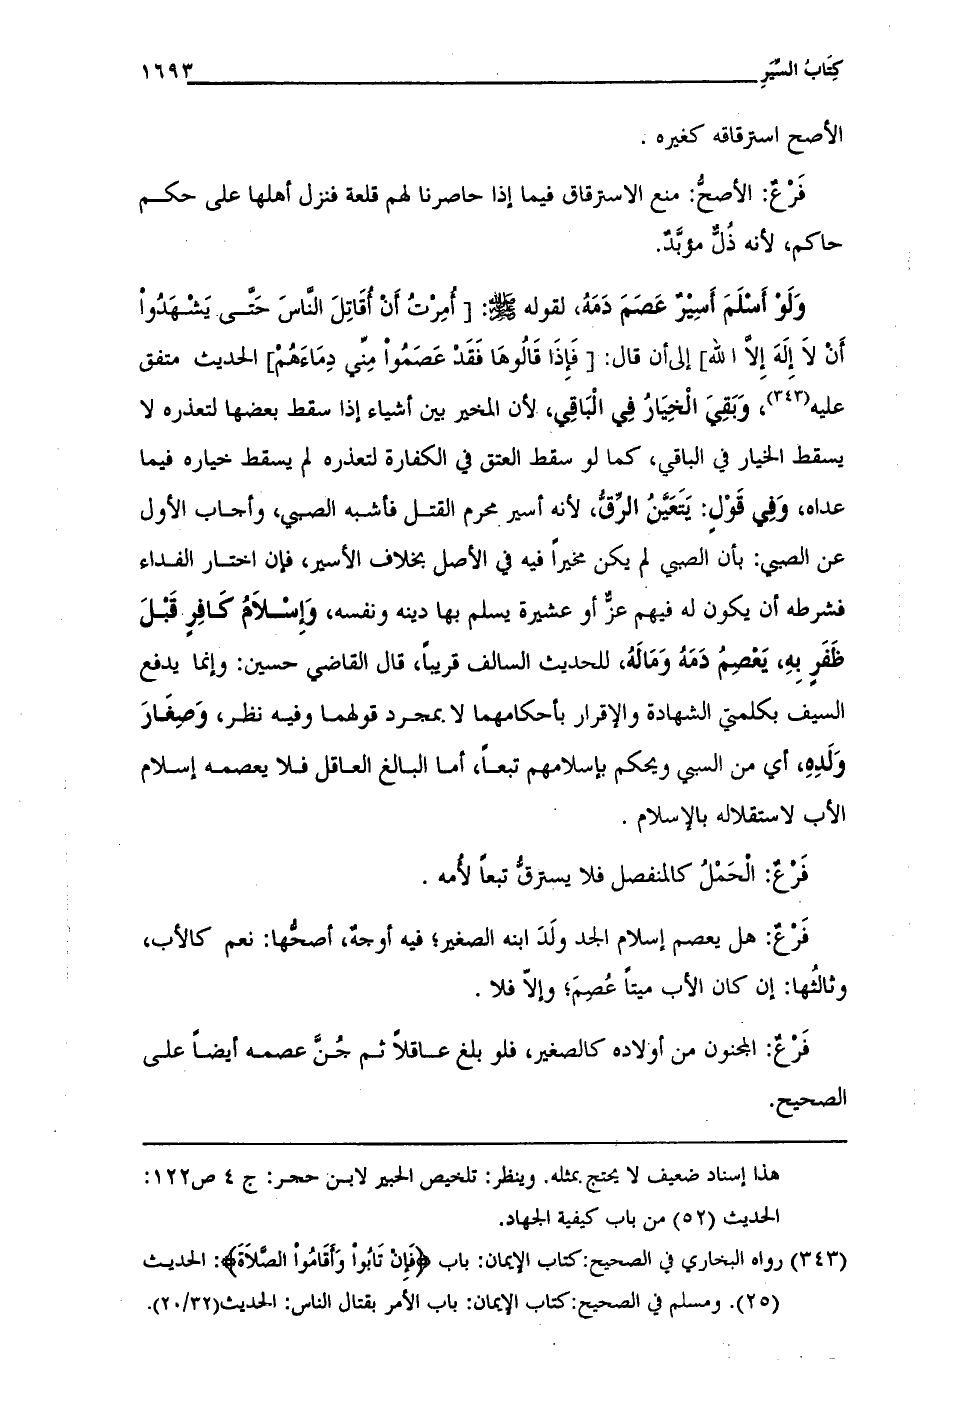 كِتَابُ السِّيَرِ ١٦٩٣
الأصح استرقاقه كغيره .
فَرْعٌ: الأصحُّ: منع الاسترقاق فيما إذا حاصرنا لهم قلعة فنزل أهلها على حكم
حاكم، لأنه ذُلٌّ مؤبَّدٌ.
وَلَوْ أَسْلَمَ أَسِيْرٌ عَصَمَ دَمَهُ، لقوله ﷺ: [ أُمِرْتُ أَنْ أُقَاتِلَ النَّاسَ حَتَّى يَشْهَدُواْ
أَنْ لاَ إِلَهَ إِلاَّ الله] إلى أن قال: [ فَإِذَا قَالُوهَا فَقَدْ عَصَمُواْ مِنِّي دِمَاءَهُمْ] الحديث متفق
عليه(٣٤٣)، وَبَقِيَ الْخِيَارُ فِي الْبَاقِي، لأن المخير بين أشياء إذا سقط بعضها لتعذره لا
يسقط الخيار في الباقي، كما لو سقط العتق في الكفارة لتعذره لم يسقط خياره فيما
عداه، وَفِي قَوْلٍ: يَتَعَيَّنُ الرِّقُّ، لأنه أسير محرم القتل فأشبه الصبي، وأجاب الأول
عن الصبي: بأن الصبي لم يكن مخيراً فيه في الأصل بخلاف الأسير، فإن اختار الفداء
فشرطه أن يكون له فيهم عزٌّ أو عشيرة يسلم بها دينه ونفسه، وَإِسْلاَمُ كَافِرٍ قَبْلَ
ظَفَرٍ بِهِ، يَعْصِمُ دَمَهُ وَمَالَهُ، للحديث السالف قريباً، قال القاضي حسين: وإنما يدفع
السيف بكلمتي الشهادة والإقرار بأحكامهما لا بمجرد قولهما وفيه نظر، وَصِغَارَ
وَلَدِهِ، أي من السبي ويحكم بإسلامهم تبعاً، أما البالغ العاقل فلا يعصمه إسلام
الأب لاستقلاله بالإسلام .
فَرْعٌ: الْحَمْلُ كالمنفصل فلا يسترقُّ تبعاً لأُمه .
فَرْعٌ: هل يعصم إسلام الجد ولَدَ ابنه الصغير؛ فيه أوجهٌ، أصحُّها: نعم كالأب،
وثالثُها: إن كان الأب ميتاً عُصِمَ؛ وإلاّ فلا .
فَرْعٌ: المجنون من أولاده كالصغير، فلو بلغ عاقلاً ثم جُنَّ عصمه أيضاً على
الصحيح.
هذا إسناد ضعيف لا يحتج بمثله. وينظر: تلخيص الحبير لابن حجر: ج ٤ ص١٢٢:
الحديث (٥٢) من باب كيفية الجهاد.
(٣٤٣) رواه البخاري في الصحيح:كتاب الإيمان: باب ﴿فَإِنْ تَابُواْ وَأَقَامُواْ الصَّلاَةَ﴾: الحديث
(٢٥). ومسلم في الصحيح:كتاب الإيمان: باب الأمر بقتال الناس: الحديث(٢٠/٣٢).